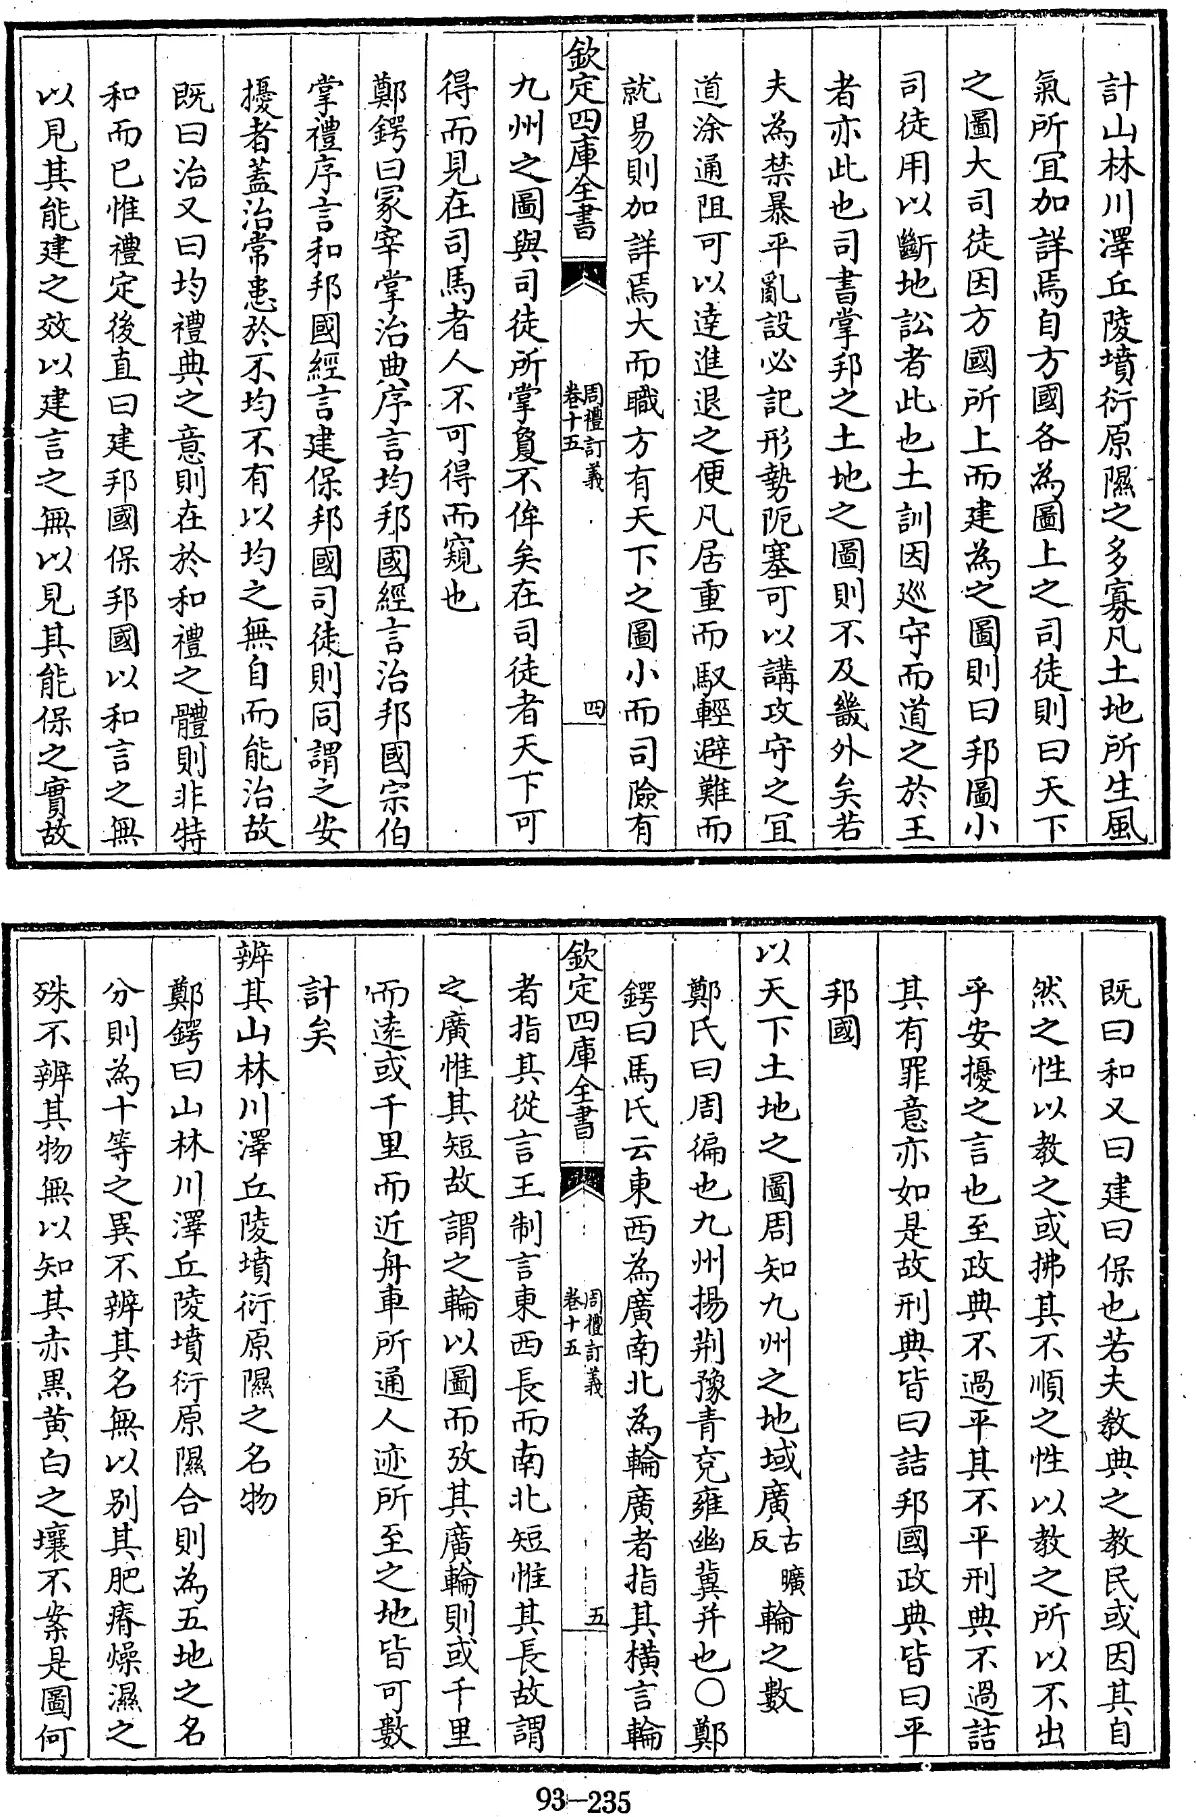 計山林川澤丘陵墳衍原隰之多寡凡土地所生風
氣所宜加詳焉自方國各為圖上之司徒則曰天下
之圖大司徒因方國所上而建為之圖則曰邦圖小
司徒用以斷地訟者此也土訓因廵守而道之於王
者亦此也司書掌邦之土地之圖則不及畿外矣若
夫為禁暴平亂設必記形勢阨塞可以講攻守之宜
道涂通阻可以逹進退之便凡居重而馭輕避難而
就易則加詳焉大而職方有天下之圖小而司險有
欽定四庫全書
周禮訂義
卷十五
四
九州之圖與司徒所掌敻不侔矣在司徒者天下可
得而見在司馬者人不可得而窺也
鄭鍔曰冢宰掌治典序言均邦國經言治邦國宗伯
掌禮序言和邦國經言建保邦國司徒則同謂之安
擾者蓋治常患於不均不有以均之無自而能治故
既曰治又曰均禮典之意則在於和禮之體則非特
和而已惟禮定後直曰建邦國保邦國以和言之無
以見其能建之效以建言之無以見其能保之實故
既曰和又曰建曰保也若夫教典之教民或因其自
然之性以教之或拂其不順之性以教之所以不出
乎安擾之言也至政典不過平其不平刑典不過詰
其有罪意亦如是故刑典皆曰詰邦國政典皆曰平
邦國
以天下土地之圖周知九州之地域廣古曠反輪之數
鄭氏曰周徧也九州揚荆豫青兗雍幽冀并也○鄭
鍔曰馬氏云東西為廣南北為輪廣者指其横言輪
欽定四庫全書
周禮訂義
卷十五
五
者指其從言王制言東西長而南北短惟其長故謂
之廣惟其短故謂之輪以圖而攷其廣輪則或千里
而遠或千里而近舟車所通人迹所至之地皆可數
計矣
辨其山林川澤丘陵墳衍原隰之名物
鄭鍔曰山林川澤丘陵墳衍原隰合則為五地之名
分則為十等之異不辨其名無以别其肥瘠燥濕之
殊不辨其物無以知其赤黒黄白之壤不案是圖何
93-235